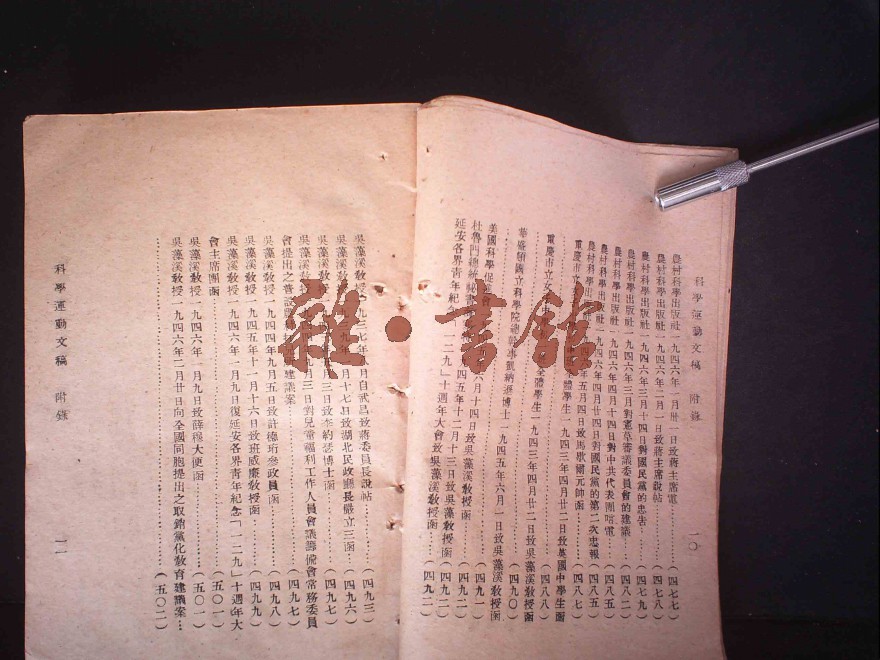 科學運動文稿 附錄 一〇
農村科學出版社一九四六年一月廿一日致蔣主席電……(四七七)
農村科學出版社一九四六年二月一日致蔣主席說帖……(四七八)
農村科學出版社一九四六年三月十四日對國民黨的忠告……(四七九)
農村科學出版社一九四六年三月對憲草審議委員會的建議……(四八二)
農村科學出版社一九四六年四月十四日對中共代表團唁電……(四八五)
農村科學出版社一九四六年四月廿四日對國民黨的第二次忠報……(四八五)
重慶市立 年五月四日致馬歇爾元帥函……(四八七)
重慶市立女 全體學生一九四三年四月廿二日致英國中學生函……(四八八)
全體學生一九四三年四月廿二日致吳藻溪教授函……(四九〇)
華盛頓國立科學院總幹事凱納遜博士一九四五年六月一日致吳藻溪教授函……(四九一)
美國科學促進會 六月十四日致吳藻溪教授函……(四九二)
杜魯門總統祕書 四五年十二月十三日致吳藻溪教授函……(四九二)
延安各界青年紀念「一二九」十週年大會致吳藻溪教授函……(四九二)
吳藻溪教授一九三七年 月自武昌致蔣委員長說帖……(四九三)
吳藻溪教授 年 月十七日致湖北民政廳長嚴立三函……(四九六)
吳藻溪教授 三日致李約瑟博士函……(四九七)
吳藻溪教授 年 月三日對兒童福利工作人員會議籌備會常務委員
會提出之普設 建議案……(四九七)
吳藻溪教授一九四四年九月五日致許德珩參政員函……(四九八)
吳藻溪教授一九四五年十一月十六日致班威廉教授函……(四九九)
吳藻溪教授一九四六年一月九日復延安各界青年紀念「一二九」十週年大
會主席團函……(五〇一)
吳藻溪教授一九四六年一月九日致薛穆大使函……(五〇一)
吳藻溪教授一九四六年二月廿日向全國同胞提出之取銷黨化教育建議案……(五〇二)
科學運動文稿 附錄 一一
雜·書館